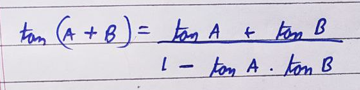 tan (A + B) = tan A + tan B
1 - tan A . tan B